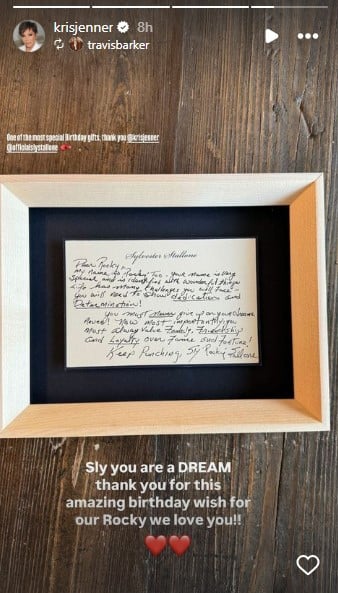 krisjenner 8h
travisbarker
One of the most special Birthday gifts, thank you @krisjenner
@officialslystallone
Sylvester Stallone
Dear Rocky,
My name is Rocky Too. Your name is very
special and is identified with wonderful things
life has many challenges you will face
you will need to show dedication and
Determination!
You must Never give up on your dreams
Never! Now most importantly, you
must always value Family, Friendship
and Loyalty over Fame and Fortune!
Keep Punching Sly Rocky Stallone
Sly you are a DREAM
thank you for this
amazing birthday wish for
our Rocky we love you!!